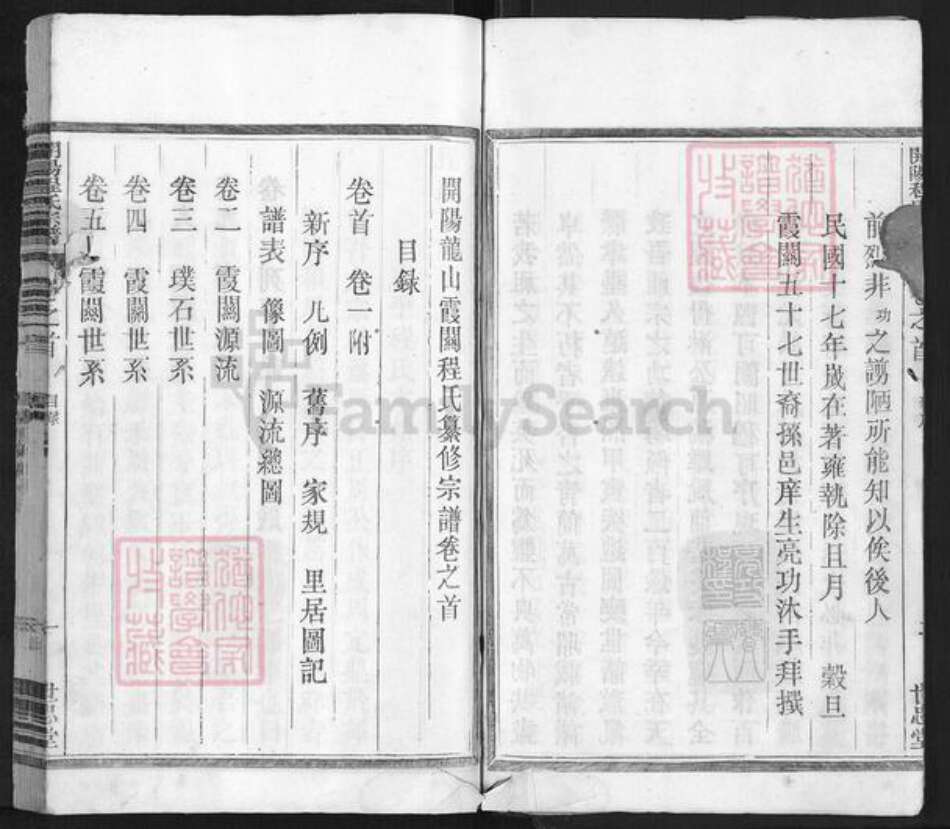 前非功之謭陋所能知以俟後人
民國十七年歲在著雍執除且月 穀旦
霞關五十七世裔孫邑庠生亮功沐手拜撰
世忠堂
開陽龍山霞關程氏纂修宗譜卷之首
目錄
卷首 卷一附
新序 凡例 舊序 家規 里居圖記
譜表 像圖 源流總圖
卷二 霞關源流
卷三 璞石世系
卷四 霞關世系
卷五 霞關世系
開陽程氏宗譜 卷之首 目錄 一 世忠堂
FamilySearch